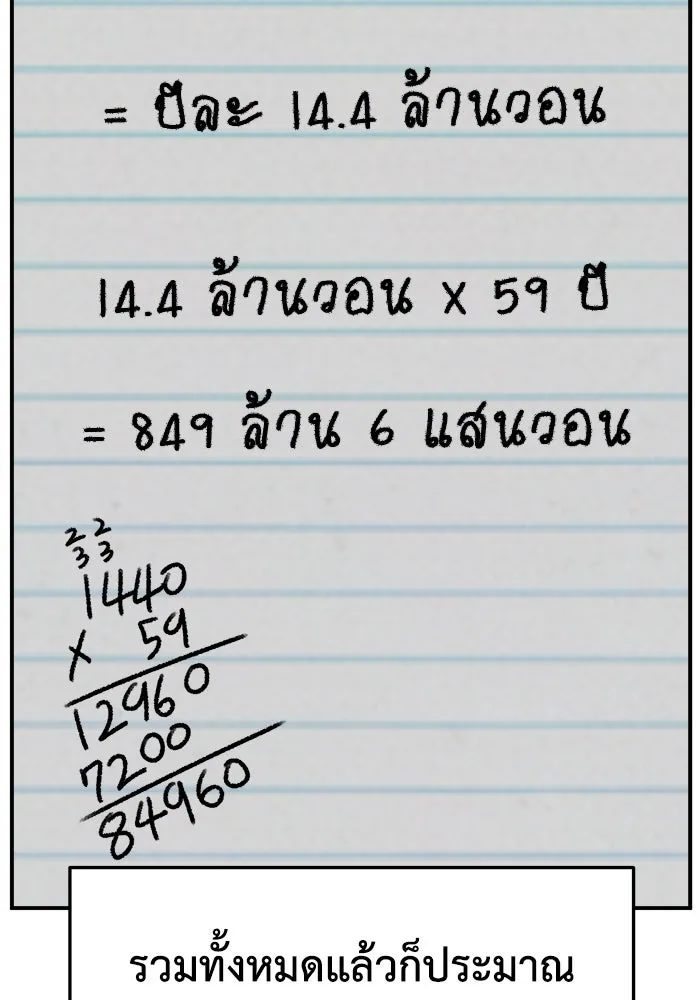 = ปีละ 14.4 ล้านวอน
14.4 ล้านวอน x 59 ปี
= 849 ล้าน 6 แสนวอน
2 2
3 3
1440
x 59
12960
7200
84960
รวมทั้งหมดแล้วก็ประมาณ